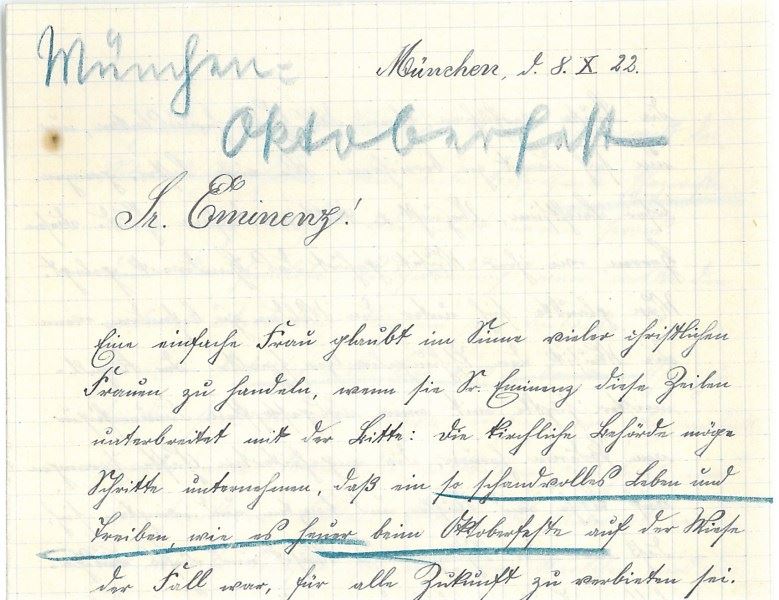 München=
München, d. 8. X 22.
Oktoberfest
Sr. Eminenz!
Eine einfache Frau glaubt im Sinne vieler christlichen
Frauen zu handeln, wenn sie Sr. Eminenz diese Zeilen
unterbreitet mit der Bitte: die kirchliche Behörde möge
Schritte unternehmen, daß ein so schandvolles Leben und
Treiben, wie es heuer beim Oktoberfeste auf der Wiese
der Fall war, für alle Zukunft zu verbieten sei.